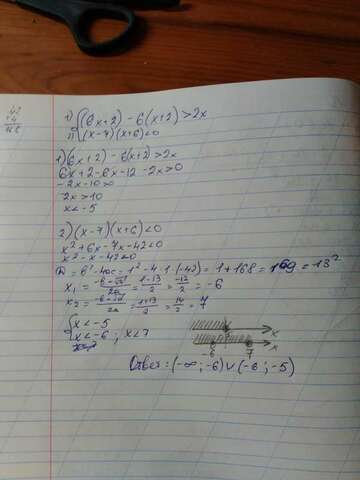 42
+4
168
1) {(6x+2) - 6(x+2) > 2x
(x-7)(x+6)<0
1)(6x+2) - 6(x+2) > 2x
6x+2-6x-12-2x>0
-2x-10>0
2x>10
x<-5
2)(x-7)(x+6)<0
x²+6x-7x-42<0
x²-x-42<0
D = b²-4ac = 1²-4·1·(-42) = 1+168 = 169 = 13²
x₁ = = 1-13/2 = -12/2 = -6
x₂ = = 1+13/2 = 14/2 = 7
{x<-5
x<-6; x<7
-6 7 x
x
Ответ: (-∞; -6)∪(-6; -5)